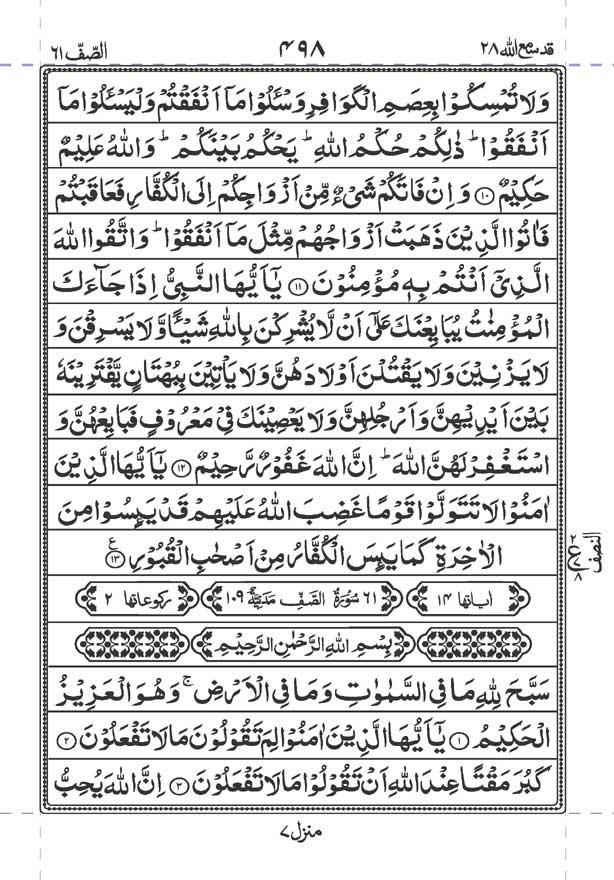 قد سمع الله ٢٨
٤٩٨
الصّفّ ٦١
وَلَا تُمْسِكُوْا بِعِصَمِ الْكَوَافِرِ وَسْـَٔلُوْا مَاۤ اَنْفَقْتُمْ وَلْيَسْـَٔلُوْا مَاۤ
اَنْفَقُوْا ؕ ذٰلِكُمْ حُكْمُ اللّٰهِ ؕ يَحْكُمُ بَيْنَكُمْ ؕ وَاللّٰهُ عَلِيْمٌ
حَكِيْمٌ ۝١٠ وَاِنْ فَاتَكُمْ شَىْءٌ مِّنْ اَزْوَاجِكُمْ اِلَى الْكُفَّارِ فَعَاقَبْتُمْ
فَاٰتُوا الَّذِيْنَ ذَهَبَتْ اَزْوَاجُهُمْ مِّثْلَ مَاۤ اَنْفَقُوْا ؕ وَاتَّقُوا اللّٰهَ
الَّذِيْۤ اَنْتُمْ بِهٖ مُؤْمِنُوْنَ ۝١١ يٰۤاَيُّهَا النَّبِىُّ اِذَا جَآءَكَ
الْمُؤْمِنٰتُ يُبَايِعْنَكَ عَلٰۤى اَنْ لَّا يُشْرِكْنَ بِاللّٰهِ شَيْـًٔا وَّلَا يَسْرِقْنَ وَ
لَا يَزْنِيْنَ وَلَا يَقْتُلْنَ اَوْلَادَهُنَّ وَلَا يَاْتِيْنَ بِبُهْتَانٍ يَّفْتَرِيْنَهٗ
بَيْنَ اَيْدِيْهِنَّ وَاَرْجُلِهِنَّ وَلَا يَعْصِيْنَكَ فِيْ مَعْرُوْفٍ فَبَايِعْهُنَّ وَ
اسْتَغْفِرْ لَهُنَّ اللّٰهَ ؕ اِنَّ اللّٰهَ غَفُوْرٌ رَّحِيْمٌ ۝١٢ يٰۤاَيُّهَا الَّذِيْنَ
اٰمَنُوْا لَا تَتَوَلَّوْا قَوْمًا غَضِبَ اللّٰهُ عَلَيْهِمْ قَدْ يَىِٕسُوْا مِنَ
الْاٰخِرَةِ كَمَا يَىِٕسَ الْكُفَّارُ مِنْ اَصْحٰبِ الْقُبُوْرِ ۝١٣ ع
النصف
٢ ع ٨
اٰياتها ١٤
٦١ سُوْرَةُ الصَّفِّ مَدَنِيَّةٌ ١٠٩
ركوعاتها ٢
بِسْمِ اللّٰهِ الرَّحْمٰنِ الرَّحِيْمِ
سَبَّحَ لِلّٰهِ مَا فِي السَّمٰوٰتِ وَمَا فِي الْاَرْضِ ۚ وَهُوَ الْعَزِيْزُ
الْحَكِيْمُ ۝١ يٰۤاَيُّهَا الَّذِيْنَ اٰمَنُوْا لِمَ تَقُوْلُوْنَ مَا لَا تَفْعَلُوْنَ ۝٢
كَبُرَ مَقْتًا عِنْدَ اللّٰهِ اَنْ تَقُوْلُوْا مَا لَا تَفْعَلُوْنَ ۝٣ اِنَّ اللّٰهَ يُحِبُّ
منزل ٧